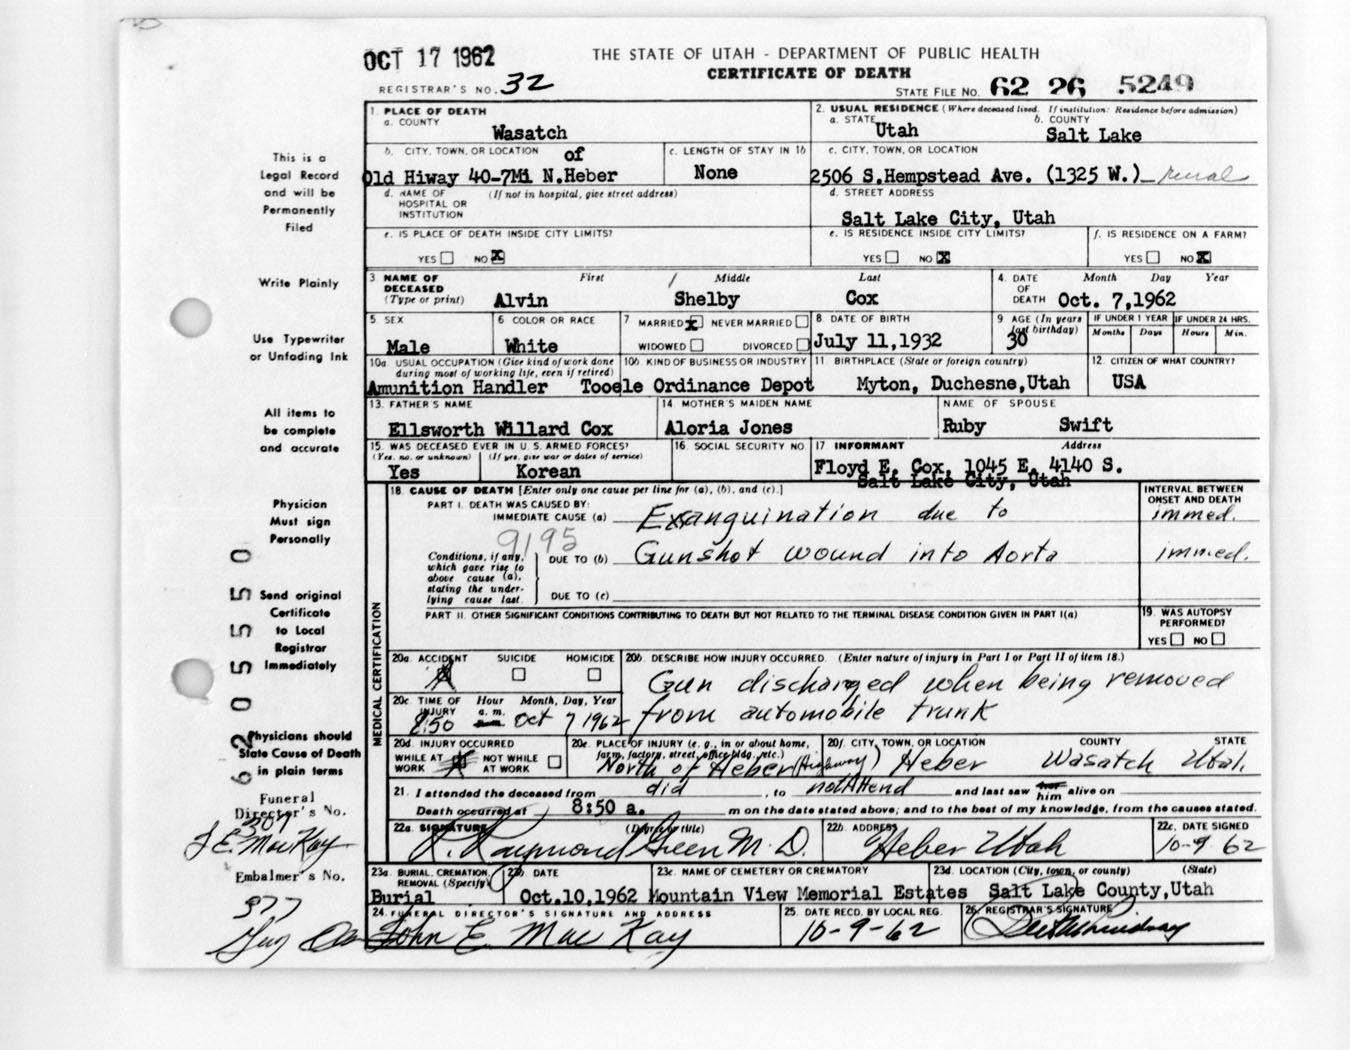 OCT 17 1962
THE STATE OF UTAH - DEPARTMENT OF PUBLIC HEALTH
CERTIFICATE OF DEATH
REGISTRAR'S NO. 32
STATE FILE NO. 62 26 5249
This is a
Legal Record
and will be
Permanently
Filed
Write Plainly
Use Typewriter
or Unfading Ink
All items to
be complete
and accurate
Physician
Must sign
Personally
Send original
Certificate
to Local
Registrar
Immediately
Physicians should
State Cause of Death
in plain terms
62 05550
Funeral
Director's No.
307
J E. MacKay
Embalmer's No.
377
1. PLACE OF DEATH
a. COUNTY
Wasatch
2. USUAL RESIDENCE (Where deceased lived. If institution: Residence before admission)
a. STATE Utah
b. COUNTY Salt Lake
b. CITY, TOWN, OR LOCATION of
Old Hiway 40-7Mi N.Heber
c. LENGTH OF STAY IN 1b
None
c. CITY, TOWN, OR LOCATION
2506 S.Hempstead Ave. (1325 W.) rural
d. NAME OF HOSPITAL OR INSTITUTION (If not in hospital, give street address)
d. STREET ADDRESS
Salt Lake City, Utah
e. IS PLACE OF DEATH INSIDE CITY LIMITS?
YES NO X
e. IS RESIDENCE INSIDE CITY LIMITS?
YES NO X
f. IS RESIDENCE ON A FARM?
YES NO X
3 NAME OF DECEASED (Type or print) First Middle Last
Alvin Shelby Cox
4. DATE OF DEATH Month Day Year
Oct. 7,1962
5 SEX
Male
6 COLOR OR RACE
White
7 MARRIED X NEVER MARRIED
WIDOWED DIVORCED
8. DATE OF BIRTH
July 11,1932
9 AGE (In years last birthday)
30
IF UNDER 1 YEAR IF UNDER 24 HRS.
Months Days Hours Min.
10a. USUAL OCCUPATION (Give kind of work done during most of working life, even if retired)
Amunition Handler
10b. KIND OF BUSINESS OR INDUSTRY
Tooele Ordinance Depot
11 BIRTHPLACE (State or foreign country)
Myton, Duchesne,Utah
12. CITIZEN OF WHAT COUNTRY?
USA
13. FATHER'S NAME
Ellsworth Willard Cox
14 MOTHER'S MAIDEN NAME
Aloria Jones
NAME OF SPOUSE
Ruby Swift
15. WAS DECEASED EVER IN U. S. ARMED FORCES?
(Yes, no, or unknown) (If yes, give war or dates of service)
Yes Korean
16. SOCIAL SECURITY NO.
17 INFORMANT Address
Floyd E. Cox, 1045 E. 4140 S.
Salt Lake City, Utah
MEDICAL CERTIFICATION
18. CAUSE OF DEATH [Enter only one cause per line for (a), (b), and (c).]
INTERVAL BETWEEN ONSET AND DEATH
PART I. DEATH WAS CAUSED BY:
IMMEDIATE CAUSE (a) Exsanguination due to immed.
9195
Conditions, if any, which gave rise to above cause (a), stating the underlying cause last.
DUE TO (b) Gunshot wound into Aorta immed.
DUE TO (c)
PART II. OTHER SIGNIFICANT CONDITIONS CONTRIBUTING TO DEATH BUT NOT RELATED TO THE TERMINAL DISEASE CONDITION GIVEN IN PART I(a)
19. WAS AUTOPSY PERFORMED?
YES NO
20a. ACCIDENT SUICIDE HOMICIDE
20b. DESCRIBE HOW INJURY OCCURRED. (Enter nature of injury in Part I or Part II of item 18.)
Gun discharged when being removed
from automobile trunk
20c. TIME OF INJURY Hour a. m. Month, Day, Year
8:50 Oct 7 1962
20d. INJURY OCCURRED
WHILE AT WORK NOT WHILE AT WORK
20e. PLACE OF INJURY (e. g., in or about home, farm, factory, street, office bldg., etc.)
North of Heber (Highway)
20f. CITY, TOWN, OR LOCATION COUNTY STATE
Heber Wasatch Utah.
21. I attended the deceased from did , to not Attend and last saw him alive on
Death occurred at 8:50 a. m on the date stated above; and to the best of my knowledge, from the causes stated.
22a. SIGNATURE (Degree or title)
R. Raymond Green M. D.
22b. ADDRESS
Heber Utah
22c. DATE SIGNED
10-9-62
23a. BURIAL, CREMATION, REMOVAL (Specify)
Burial
23b. DATE
Oct.10,1962
23c. NAME OF CEMETERY OR CREMATORY
Mountain View Memorial Estates
23d. LOCATION (City, town, or county) (State)
Salt Lake County,Utah
24. FUNERAL DIRECTOR'S SIGNATURE AND ADDRESS
John E. MacKay
25. DATE RECD. BY LOCAL REG.
10-9-62
26. REGISTRAR'S SIGNATURE